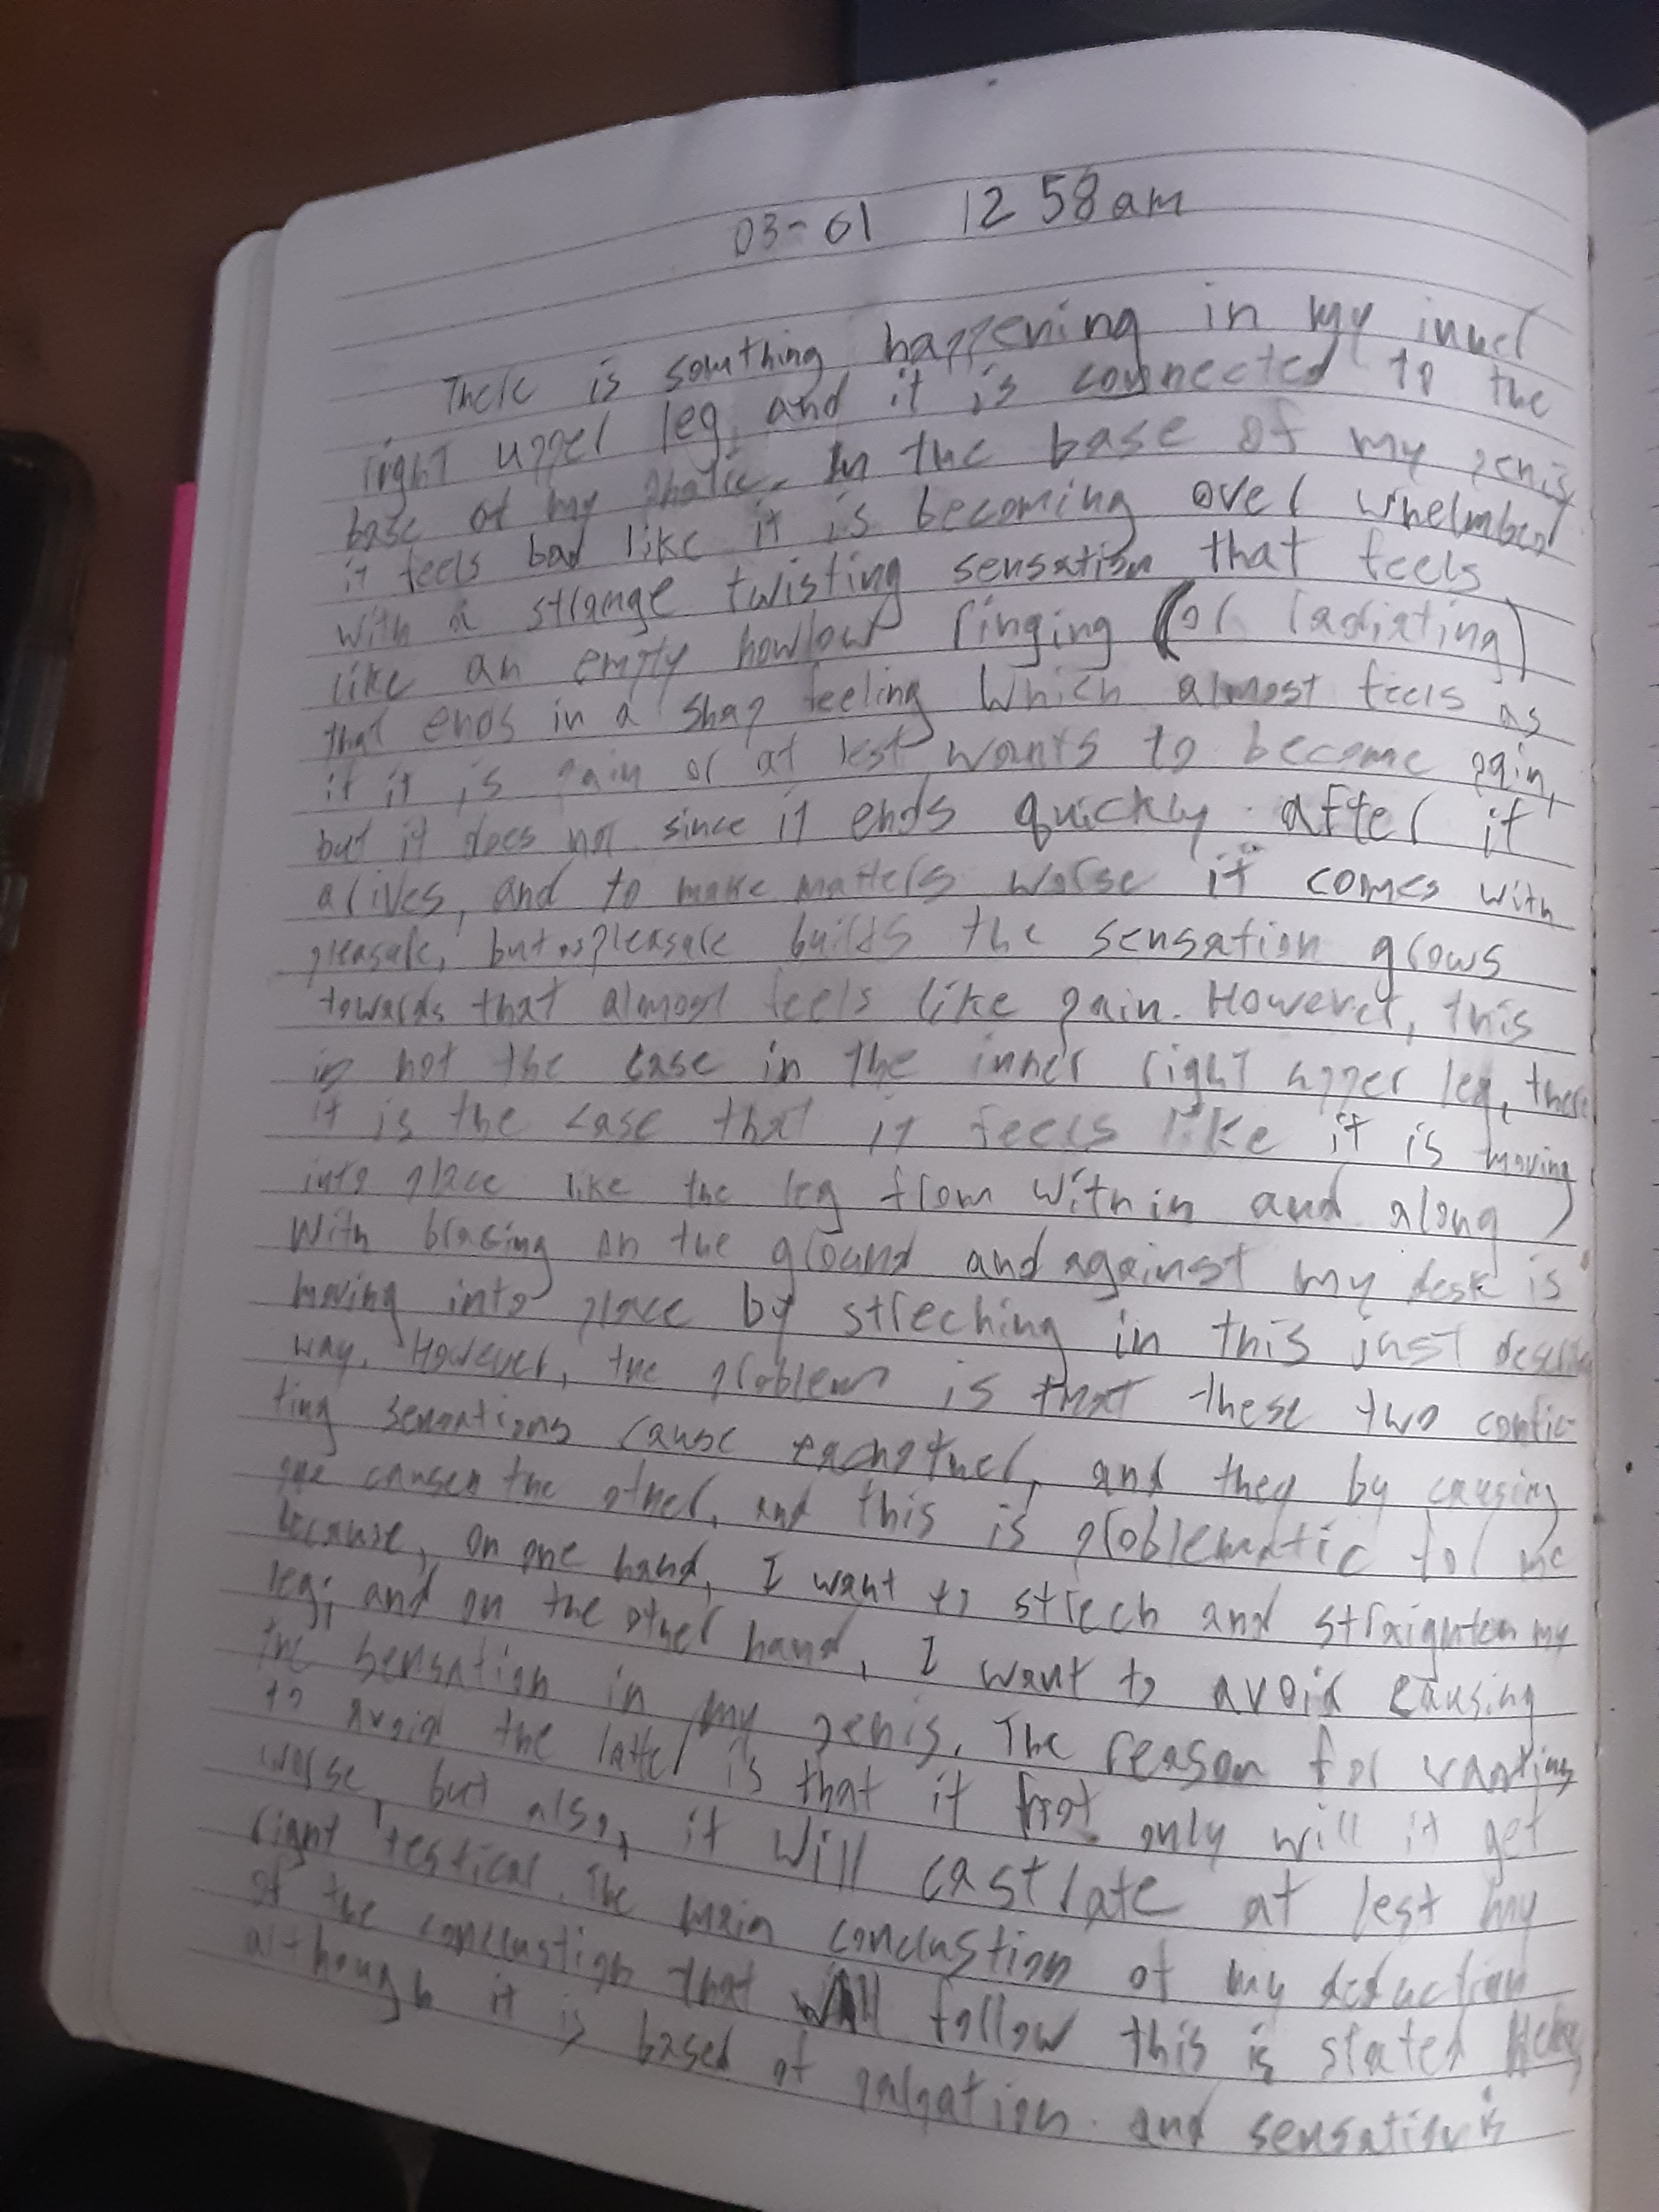 03-01 12 58am
There is somthing happening in my inner
right upper leg, and it is connected to the
base of my In the base of my penis
it feels bad like it is becoming over whelmbed
with a strange twisting sensation that feels
like an empty howlow ringing (or radiating)
that ends in a shap feeling which almost feels as
if it is pain or at lest wants to become pain,
but it does not since it ends quickly after it
arives, and to make matters worse it comes with
pleasure, but as pleasure builds the sensation grows
towards that almost feels like pain. However, this
is not the case in the inner right upper leg, there
it is the case that it feels like it is moving
into place like the leg from within and along
with bracing on the ground and against my desk is
moving into place by streching in this just
way. However, the problem is that these two conflic-
ting sensations cause eachother, and they by causing
one causes the other, and this is problematic for me
because, on one hand, I want to strech and straighten my
leg; and on the other hand, I want to avoid causing
the sensation in my penis. The reason for wanting
to avoid the latter is that it not only will it get
worse, but also, it will castrate at lest my
right testical. The main conclustion of my deduction
of the conclustion that will follow this is stated
although it is based of palpation and sensation